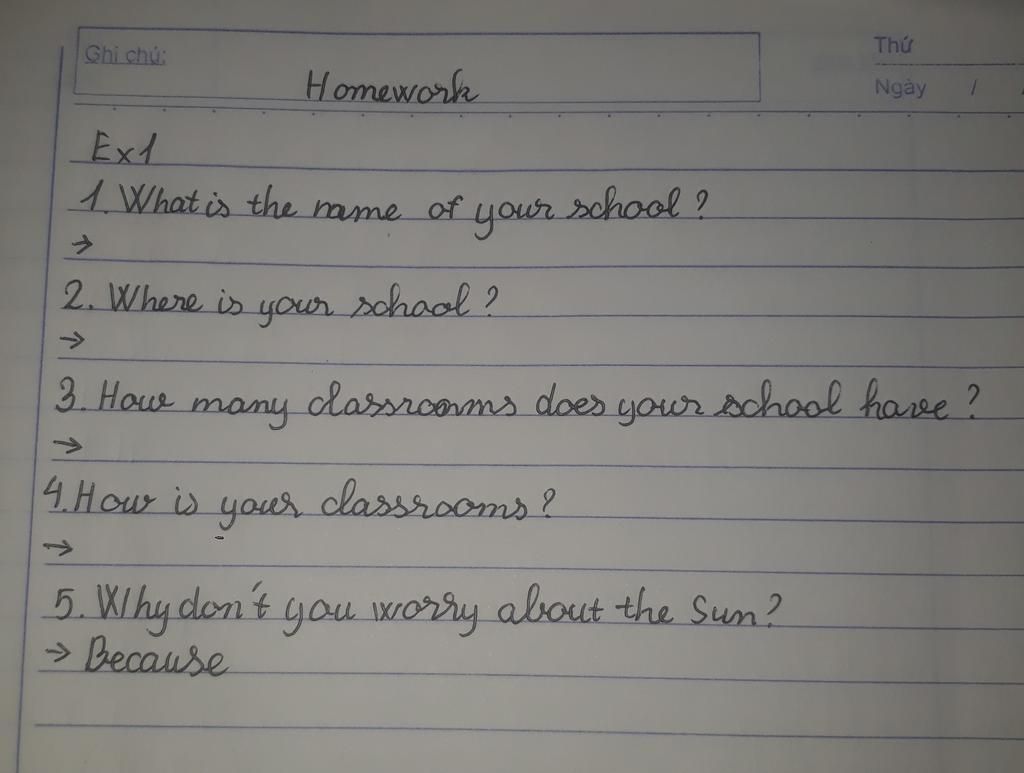 Ghi chú:
Thứ
Homework
Ngày / /
Ex1
1. What is the name of your school?
→
2. Where is your school?
→
3. How many classrooms does your school have?
→
4. How is your classrooms?
→
5. Why don't you worry about the Sun?
→ Because